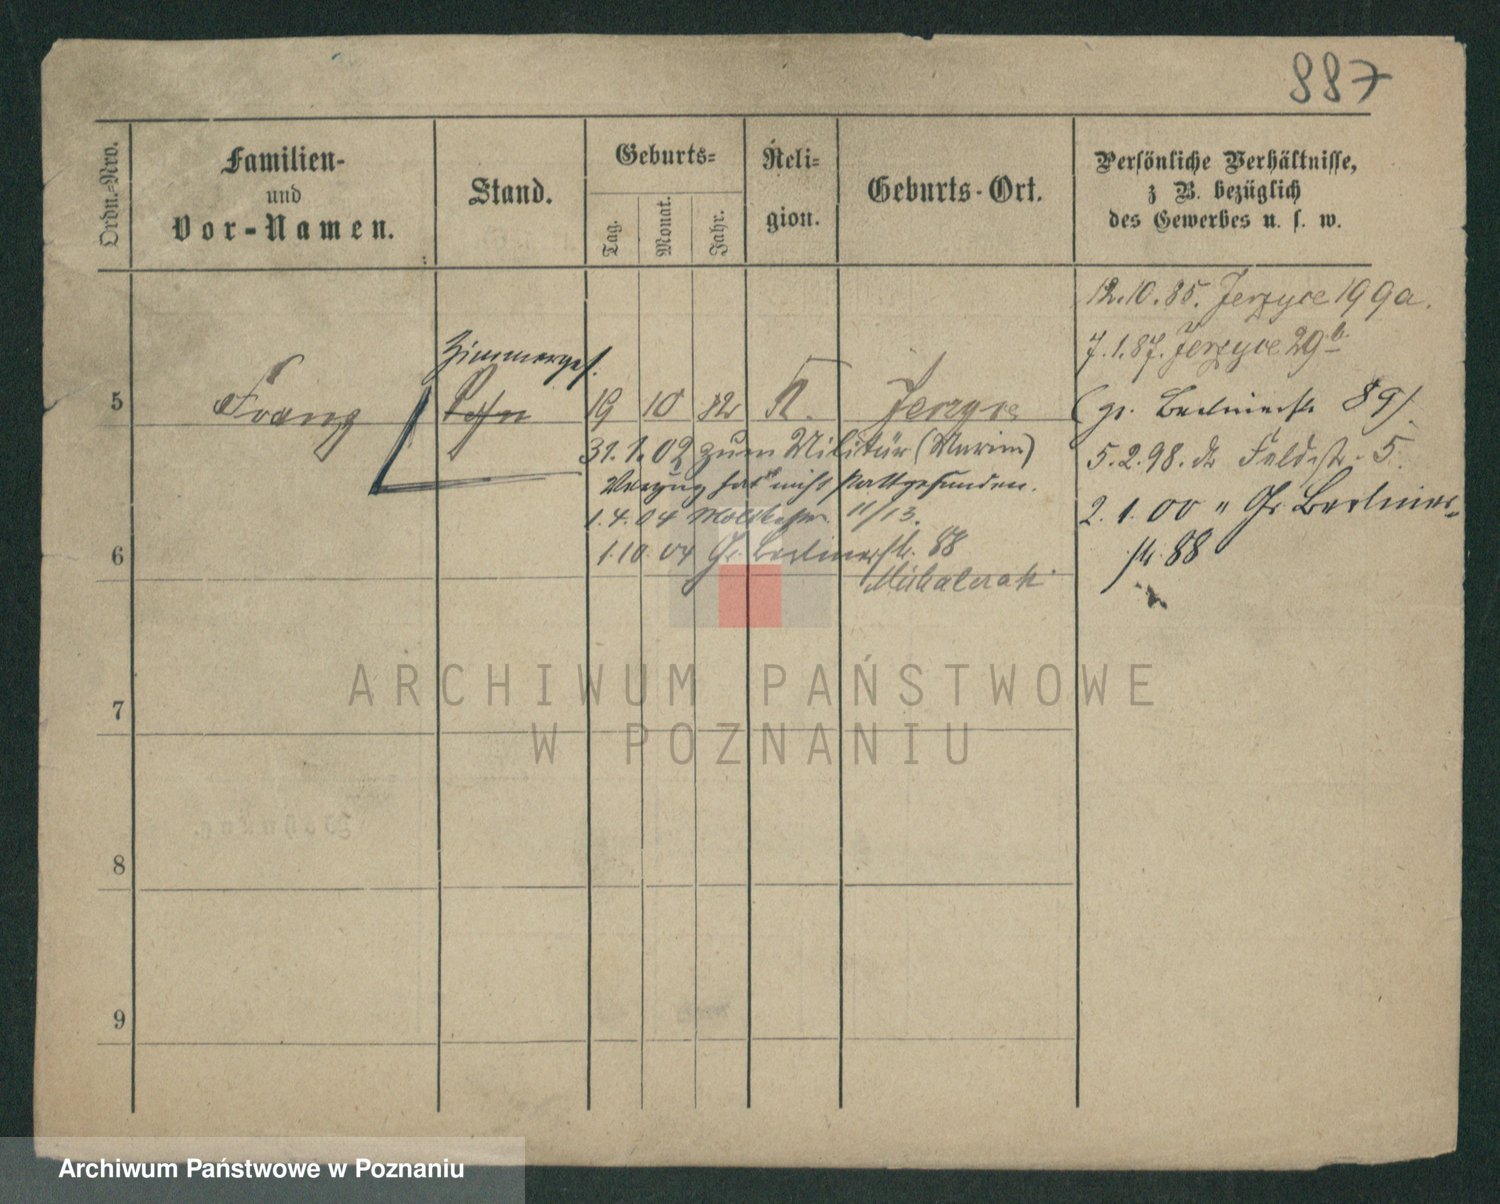 887
Ordn.-Nro.
Familien-
und
Vor-Namen.
Stand.
Geburts-
Tag.
Monat.
Jahr.
Reli-
gion.
Geburts-Ort.
Persönliche Verhältnisse,
z B. bezüglich
des Gewerbes u. s. w.
12.10.85. Jerzyce 199a.
7.1.87. Jerzyce 29b
Zimmerges.
5
Franz
Sohn
19 10 82 K. Jerzyce
(gr. Berlinerstr 89)
31.1.02 zum Militär (Marine)
5.2.98. Feldstr. 5.
Verzug hat nicht stattgefunden.
2.1.00 " Gr. Berliner-
str 88
1.4.04 Moltkestr. 11/13.
1.10.04 Gr. Berlinerstr. 88
6
7
8
9
ARCHIWUM PAŃSTWOWE
W POZNANIU
Archiwum Państwowe w Poznaniu